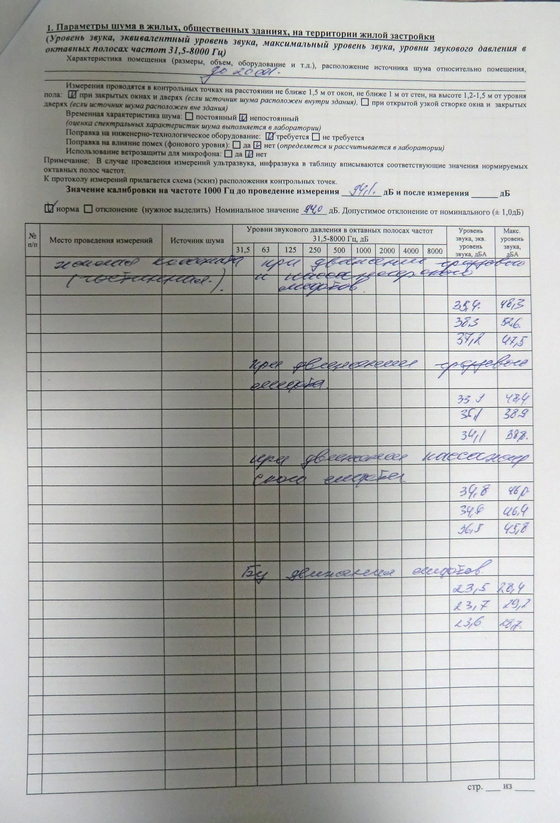 1. Параметры шума в жилых, общественных зданиях, на территории жилой застройки
(Уровень звука, эквивалентный уровень звука, максимальный уровень звука, уровни звукового давления в
октавных полосах частот 31,5-8000 Гц)
Характеристика помещения (размеры, объем, оборудование и т.п.), расположение источника шума относительно помещения,
Измерения проводятся в контрольных точках на расстоянии не ближе 1,5 м от окон, не ближе 1 м от стен, на высоте 1,2-1,5 м от уровня
пола: ☑ при закрытых окнах и дверях (если источник шума расположен внутри здания). ☐ при открытой узкой створке окна и закрытых
дверях (если источник шума расположен вне здания)
Временная характеристика шума: ☐ постоянный ☑ непостоянный
(оценка спектральных характеристик шума выполняется в лаборатории)
Поправка на инженерно-технологическое оборудование: ☑ требуется ☐ не требуется
Поправка на влияние помех (фонового уровня): ☐ да ☑ нет (определяется и рассчитывается в лаборатории)
Использование ветрозащиты для микрофона: ☐ да ☑ нет
Примечание: В случае проведения измерений ультразвука, инфразвука в таблицу вписываются соответствующие значения нормируемых
октавных полос частот.
К протоколу измерений прилагается схема (эскиз) расположения контрольных точек.
Значение калибровки на частоте 1000 Гц до проведения измерения 94,1 дБ и после измерения ____ дБ
☑ норма ☐ отклонение (нужное выделить) Номинальное значение 94,0 дБ. Допустимое отклонение от номинального (± 1,0дБ)
№ п/п Место проведения измерений Источник шума Уровни звукового давления в октавных полосах частот 31,5-8000 Гц, дБ Уровень звука, экв. уровень звука, дБА Макс. уровень звука, дБА
31,5 63 125 250 500 1000 2000 4000 8000
жилая комната при движении грузового
(гостинная.) и пассажирского
лифтов.
48,3
38,3
37,2 47,5
при движении грузового
лифта.
48,4
35,1 38,9
34,1
при движении пассажир
ского лифта
34,8
46,4
36,5 45,8
Без движения лифтов
23,5 28,4
23,7 29,2
23,6
стр. ___ из ___